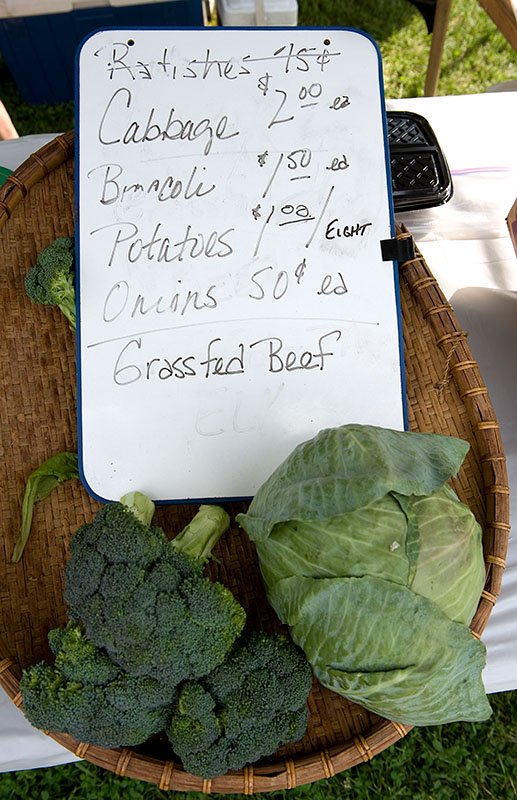 Ratishes 15¢
Cabbage $2.00 ea
Broccoli $1.50 ed
Potatoes $1.00/EIGHT
Onions 50¢ ed
Grassfed Beef